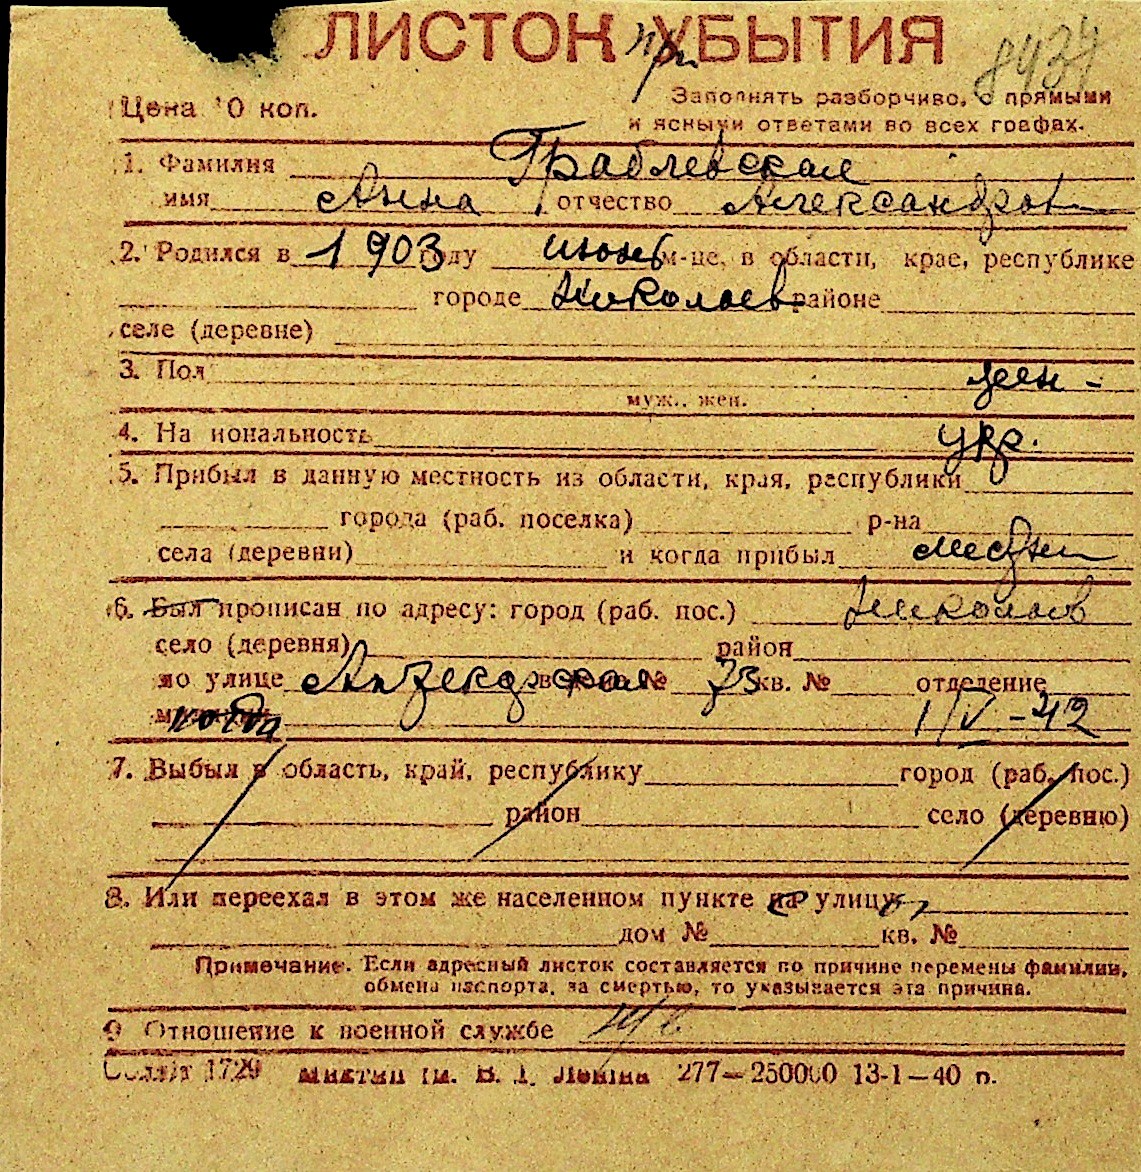 ЛИСТОК УБЫТИЯ
при 8434
Цена 10 коп. Заполнять разборчиво, с прямыми
и ясными ответами во всех графах.
1. Фамилия Граблевская
имя Анна отчество Александров
2. Родился в 1903 году июнь м-це, в области, крае, республике
городе Николаев районе
селе (деревне)
3. Пол жен -
муж., жен.
4. Национальность укр.
5. Прибыл в данную местность из области, края, республики
города (раб. поселка) р-на
села (деревни) и когда прибыл местн
6. Был прописан по адресу: город (раб. пос.) Николаев
село (деревня) район
по улице 73 кв. № отделение
когда 1/V-42
7. Выбыл в область, край, республику город (раб. пос.)
район село (деревню)
8. Или переехал в этом же населенном пункте улицы
дом № кв. №
Примечание. Если адресный листок составляется по причине перемены фамилии,
обмена паспорта, за смертью, то указывается эта причина.
9 Отношение к военной службе
1729 277—250000 13-1—40 п.